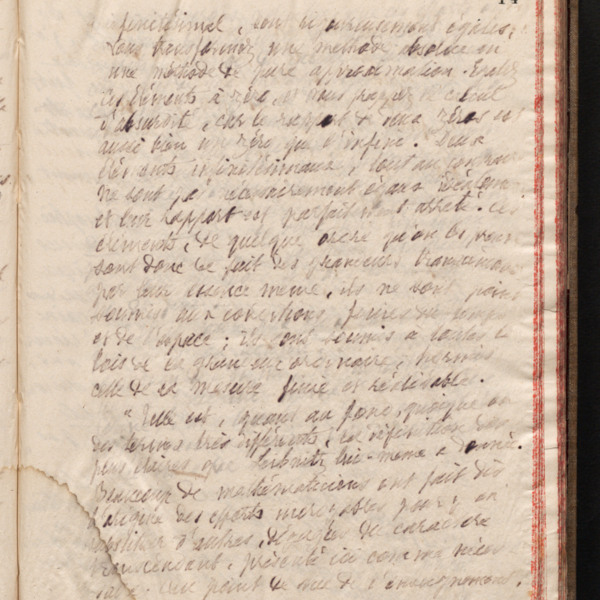 infinitésimal, sont rigoureusement égales;
vous transformez une méthode absolue en
une méthode de pure approximation. Egalez
ces éléments à zéro, et vous frappez le calcul
d'absurdité, car le rapport de deux zéros est
aussi bien un zéro, que l'infini. Deux
éléments infinitésimaux, tout au contraire
ne sont pas nécessairement égaux
et leur rapport est parfaitement arrêté. Ces
éléments, de quelque ordre qu'on les prenne
sont donc de fait des grandeurs
par leur essence même, ils ne sont point
soumis aux conditions finies du temps
et de l'espace; ils sont soumis à toutes les
lois de la grandeur ordinaire, hormis
celle de la mesure finie et réalisable.
"Telle est, quant au fond, quoique en
des termes très différents, la définition
plus claire que Leibnitz lui-même a donnée.
Beaucoup de mathématiciens ont fait
des efforts incroyables pour y en
substituer d'autres, dénuées de caractère
transcendant, présenté ici comme
au point de vue de l'enseignement.